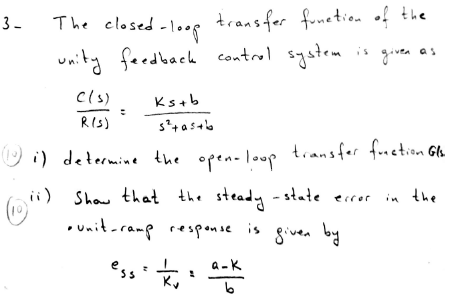 3- The closed-loop transfer function of the
unity feedback control system is given as
C(s) / R(s) = Ks+b / s²+as+b
(10) i) determine the open-loop transfer function G(s).
(10) ii) Show that the steady-state error in the
unit-ramp response is given by
e_ss = 1/K_v = a-K / b